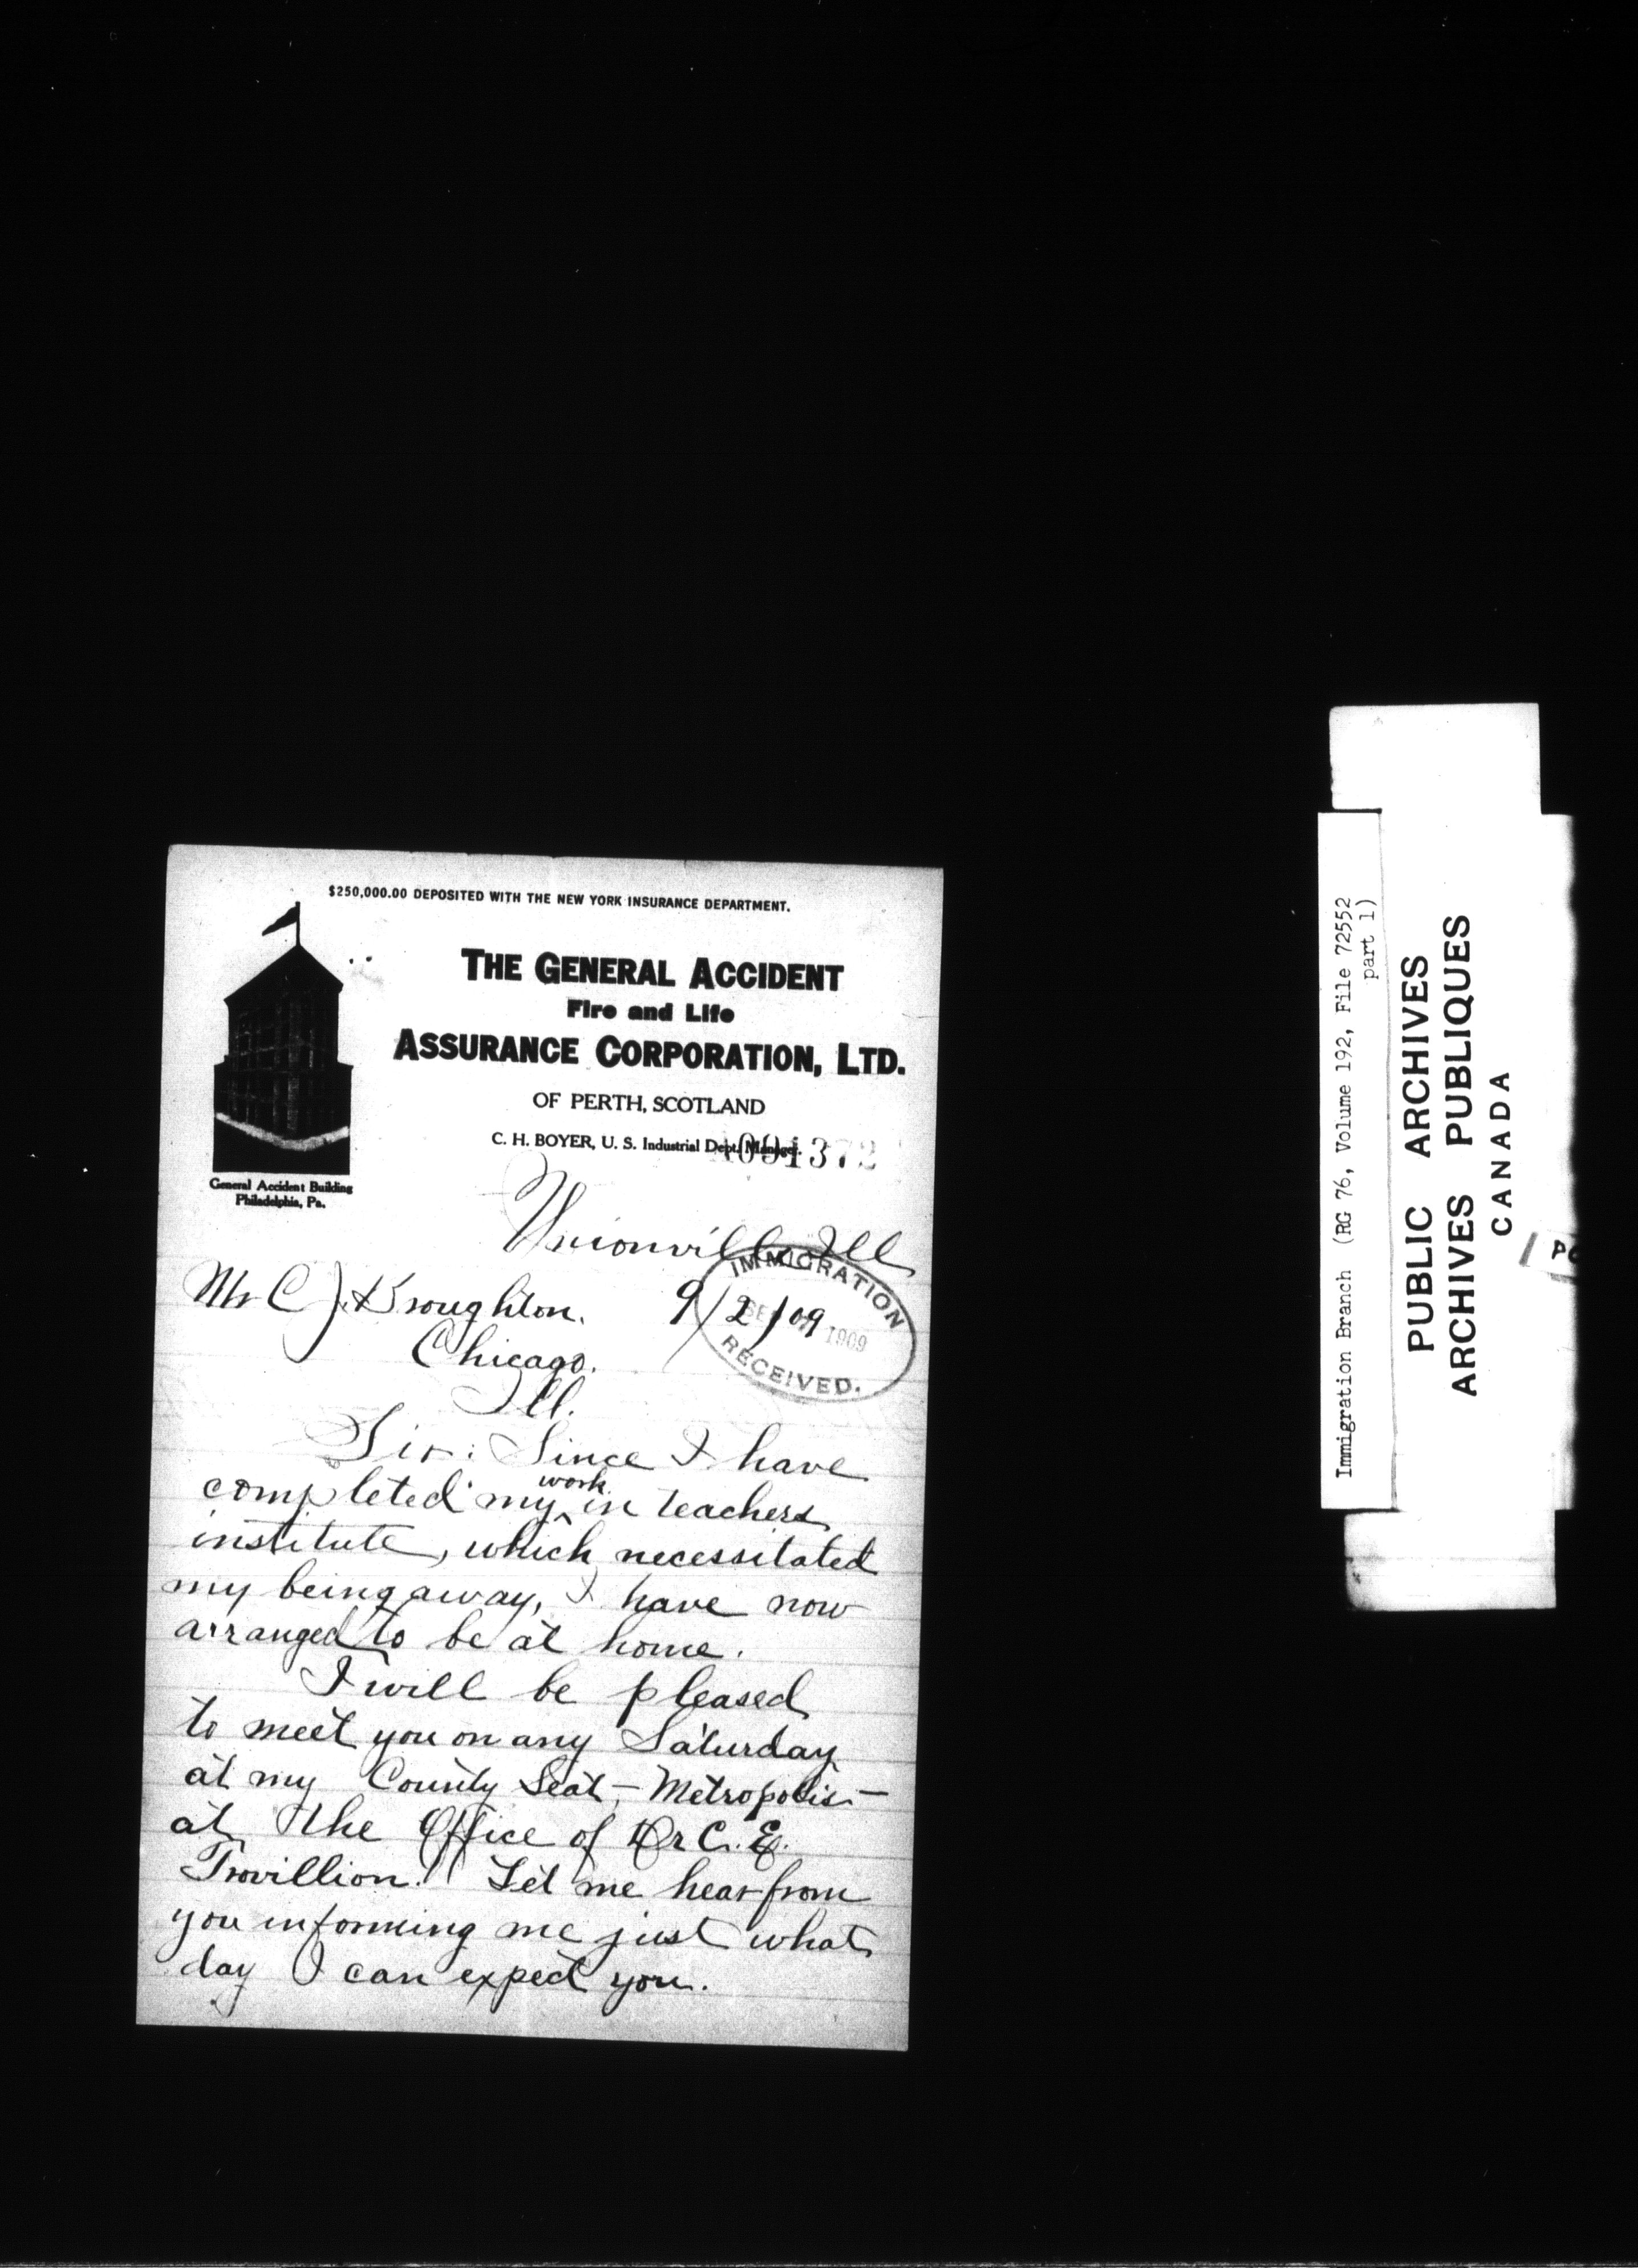 $250,000.00 DEPOSITED WITH THE NEW YORK INSURANCE DEPARTMENT.
THE GENERAL ACCIDENT
Fire and Life
ASSURANCE CORPORATION, LTD.
OF PERTH, SCOTLAND
C. H. BOYER, U. S. Industrial Dept. Manager.
General Accident Building
Philadelphia, Pa.
Unionville Ill
IMMIGRATION
1909
RECEIVED.
Mr C J. Broughton. 9/2/09
Chicago.
Ill.
Sir: Since I have
completed my work in teachers
institute, which necessitated
my being away, I have now
arranged to be at home.
I will be pleased
to meet you on any Saturday
at my County Seat, - Metropolis -
at the Office of Dr C. E.
Trovillion. Let me hear from
you informing me just what
day I can expect you.
Immigration Branch (RG 76, Volume 192, File 72552
part 1)
PUBLIC ARCHIVES
ARCHIVES PUBLIQUES
CANADA